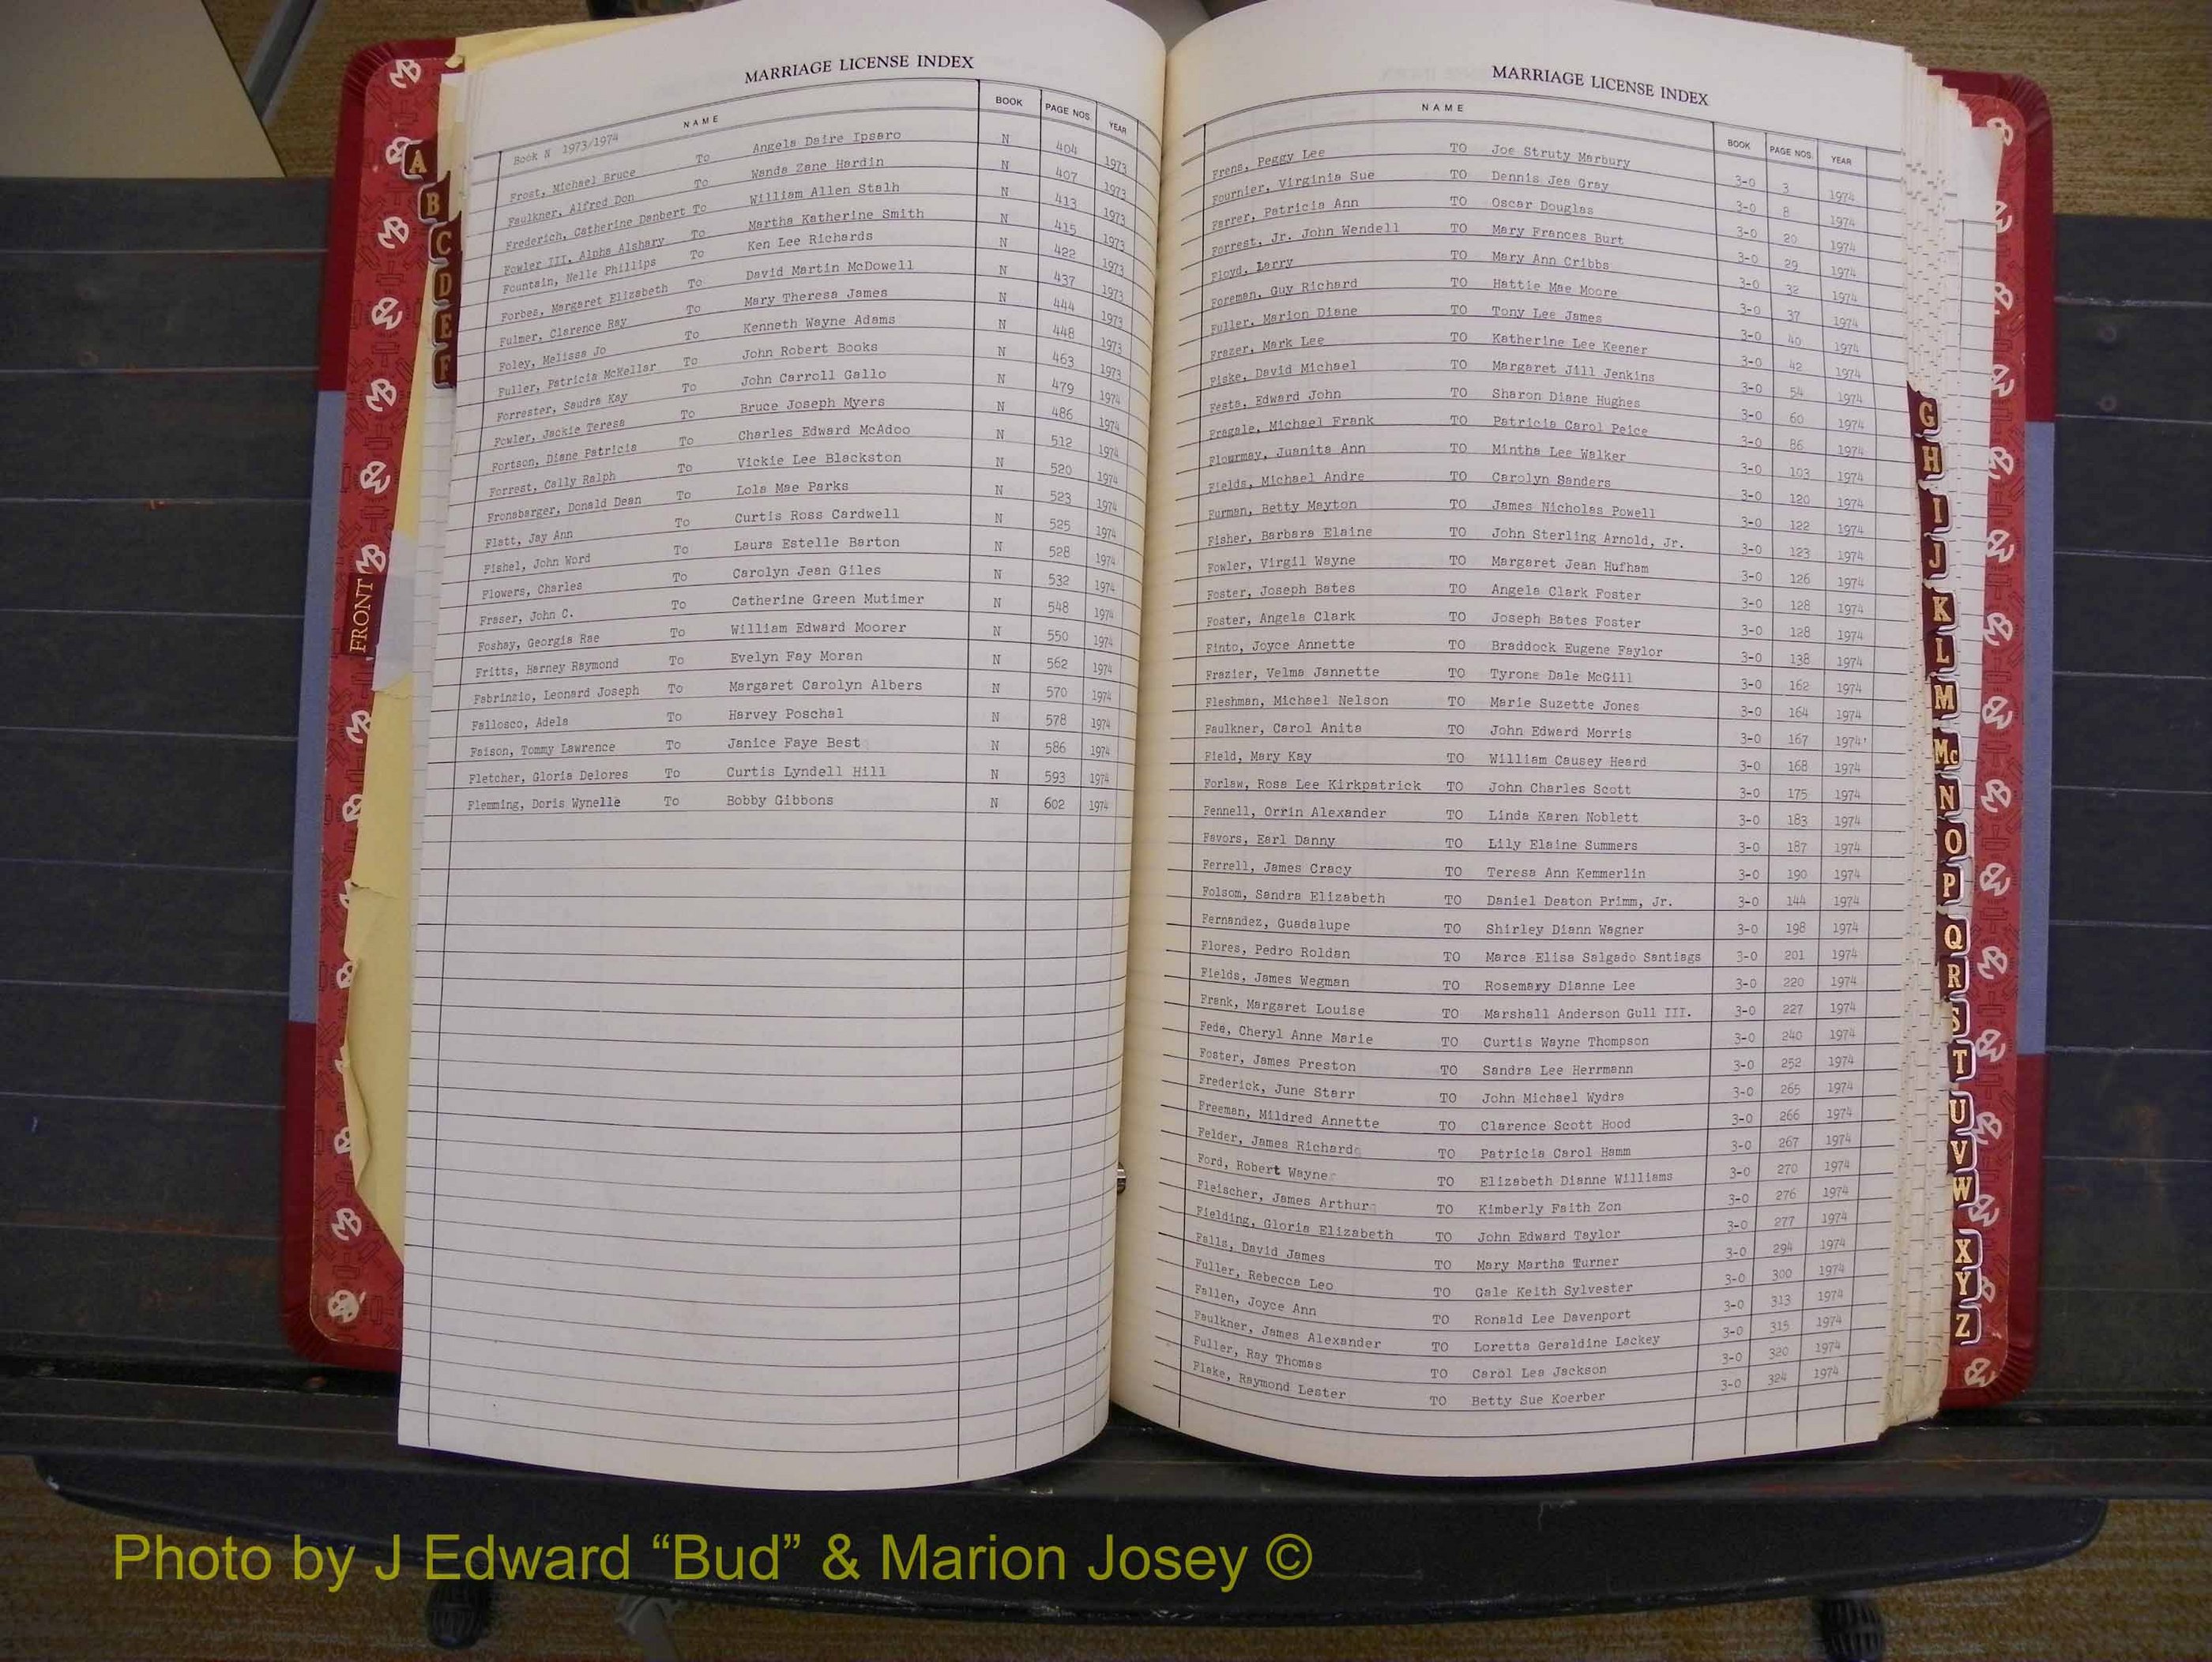 MARRIAGE LICENSE INDEX
NAME BOOK PAGE NOS. YEAR
Book N 1973/1974
Frost, Michael Bruce To Angela Daire Ipsaro N 404 1973
Faulkner, Alfred Don To Wanda Zane Hardin N 407 1973
Frederich, Catherine Danbert To William Allen Stalh N 413 1973
Fowler III, Alpha Alshary To Martha Katherine Smith N 415 1973
Fountain, Nelle Phillips To Ken Lee Richards N 422 1973
Forbes, Margaret Elizabeth To David Martin McDowell N 437 1973
Fulmer, Clarence Ray To Mary Theresa James N 444 1973
Foley, Melissa Jo To Kenneth Wayne Adams N 448 1973
Fuller, Patricia McKellar To John Robert Books N 463 1973
Forrester, Saudra Kay To John Carroll Gallo N 479 1974
Fowler, Jackie Teresa To Bruce Joseph Myers N 486 1974
Fortson, Diane Patricia To Charles Edward McAdoo N 512 1974
Forrest, Cally Ralph To Vickie Lee Blackston N 520 1974
Fronabarger, Donald Dean To Lola Mae Parks N 523 1974
Flatt, Jay Ann To Curtis Ross Cardwell N 525 1974
Fishel, John Word To Laura Estelle Barton N 528 1974
Flowers, Charles To Carolyn Jean Giles N 532 1974
Fraser, John C. To Catherine Green Mutimer N 548 1974
Foshay, Georgia Rae To William Edward Moorer N 550 1974
Fritts, Harney Raymond To Evelyn Fay Moran N 562 1974
Fabrinzio, Leonard Joseph To Margaret Carolyn Albers N 570 1974
Fallosco, Adela To Harvey Poschal N 578 1974
Faison, Tommy Lawrence To Janice Faye Best N 586 1974
Fletcher, Gloria Delores To Curtis Lyndell Hill N 593 1974
Flemming, Doris Wynelle To Bobby Gibbons N 602 1974
MARRIAGE LICENSE INDEX
NAME BOOK PAGE NOS. YEAR
Frens, Peggy Lee TO Joe Struty Marbury 3-0 3 1974
Fournier, Virginia Sue TO Dennis Jea Gray 3-0 8 1974
Farrer, Patricia Ann TO Oscar Douglas 3-0 20 1974
Forrest, Jr. John Wendell TO Mary Frances Burt 3-0 29 1974
Floyd, Larry TO Mary Ann Cribbs 3-0 32 1974
Foreman, Guy Richard TO Hattie Mae Moore 3-0 37 1974
Fuller, Marion Diane TO Tony Lee James 3-0 40 1974
Frazer, Mark Lee TO Katherine Lee Keener 3-0 42 1974
Fiske, David Michael TO Margaret Jill Jenkins 3-0 54 1974
Festa, Edward John TO Sharon Diane Hughes 3-0 60 1974
Fragale, Michael Frank TO Patricia Carol Peice 3-0 86 1974
Flournay, Juanita Ann TO Mintha Lee Walker 3-0 103 1974
Fields, Michael Andre TO Carolyn Sanders 3-0 120 1974
Furman, Betty Mayton TO James Nicholas Powell 3-0 122 1974
Fisher, Barbara Elaine TO John Sterling Arnold, Jr. 3-0 123 1974
Fowler, Virgil Wayne TO Margaret Jean Hufham 3-0 126 1974
Foster, Joseph Bates TO Angela Clark Foster 3-0 128 1974
Foster, Angela Clark TO Joseph Bates Foster 3-0 128 1974
Finto, Joyce Annette TO Braddock Eugene Faylor 3-0 138 1974
Frazier, Velma Jannette TO Tyrone Dale McGill 3-0 162 1974
Fleshman, Michael Nelson TO Marie Suzette Jones 3-0 164 1974
Faulkner, Carol Anita TO John Edward Morris 3-0 167 1974
Field, Mary Kay TO William Causey Heard 3-0 168 1974
Forlaw, Rosa Lee Kirkpatrick TO John Charles Scott 3-0 175 1974
Fennell, Orrin Alexander TO Linda Karen Noblett 3-0 183 1974
Favors, Earl Danny TO Lily Elaine Summers 3-0 187 1974
Ferrell, James Cracy TO Teresa Ann Kemmerlin 3-0 190 1974
Folsom, Sandra Elizabeth TO Daniel Deaton Primm, Jr. 3-0 144 1974
Fernandez, Guadalupe TO Shirley Diann Wagner 3-0 198 1974
Flores, Pedro Roldan TO Marca Elisa Salgado Santiags 3-0 201 1974
Fields, James Wegman TO Rosemary Dianne Lee 3-0 220 1974
Frank, Margaret Louise TO Marshall Anderson Gull III. 3-0 227 1974
Fede, Cheryl Anne Marie TO Curtis Wayne Thompson 3-0 240 1974
Foster, James Preston TO Sandra Lee Herrmann 3-0 252 1974
Frederick, June Starr TO John Michael Wydra 3-0 265 1974
Freeman, Mildred Annette TO Clarence Scott Hood 3-0 266 1974
Felder, James Richard TO Patricia Carol Hamm 3-0 267 1974
Ford, Robert Wayne TO Elizabeth Dianne Williams 3-0 270 1974
Fleischer, James Arthur TO Kimberly Faith Zon 3-0 276 1974
Fielding, Gloria Elizabeth TO John Edward Taylor 3-0 277 1974
Falls, David James TO Mary Martha Turner 3-0 294 1974
Fuller, Rebecca Leo TO Gale Keith Sylvester 3-0 300 1974
Fallen, Joyce Ann TO Ronald Lee Davenport 3-0 313 1974
Faulkner, James Alexander TO Loretta Geraldine Lackey 3-0 315 1974
Fuller, Ray Thomas TO Carol Lea Jackson 3-0 320 1974
Flake, Raymond Lester TO Betty Sue Koerber 3-0 324 1974
A
B
C
D
E
F
FRONT
G
H
I
J
K
L
M
Mc
N
O
P
Q
R
S
T
U
V
W
X
Y
Z
Photo by J Edward “Bud” & Marion Josey ©